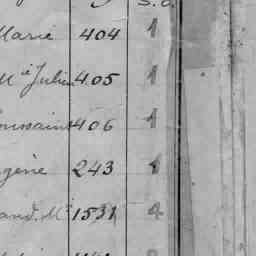 S. O.
Marie 404 1
Mie Julien 405 1
Toussaint 406 1
gène 243 1
and. Mie 1531 4